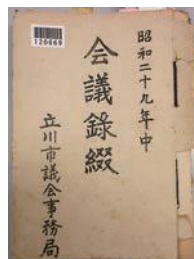 120669
昭和二十九年中
会議錄綴
立川市議会事務局